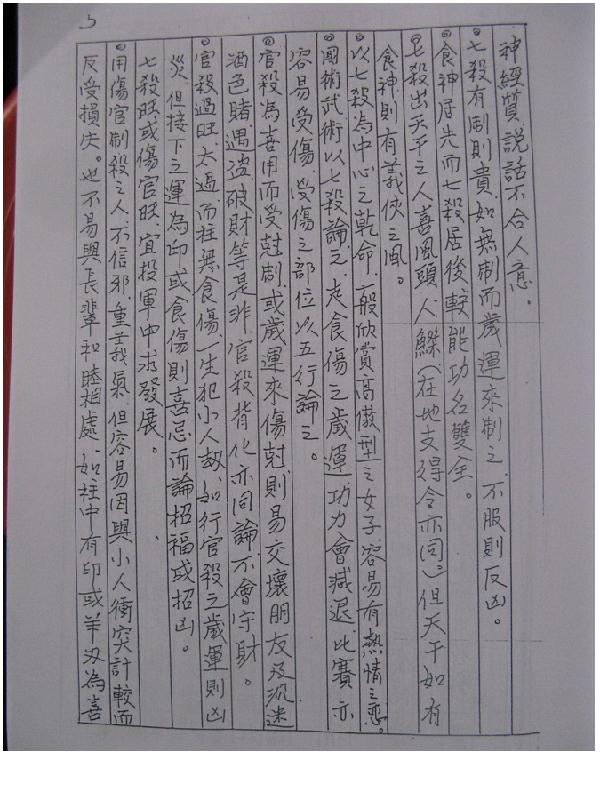 5
神經質、說話不合人意。
七殺有制則貴、如無制而歲運來制之、不服則反凶。
食神居先而七殺居後、較能功名雙全。
七殺出天干之人、喜風頭、人鰥(在地支得令亦同)、但天干如有
食神則有義俠之風。
以七殺為中心之乾命、一般欣賞高傲型之女子、容易有熱情之戀。
國術武術以七殺論之、走食傷之歲運、功力會減退、比賽亦
容易受傷、受傷之部位以五行論之。
官殺為喜用而受尅制、或歲運來傷尅、則易交壞朋友及沉迷
酒色賭、遇盜破財等、其非官殺背化亦同論、不會守財。
官殺過旺、太過、而柱無食傷一生犯小人敬、如行官殺之歲運則凶
災、但接下之運為印或食傷則喜忌而論招福或招凶。
七殺旺或傷官旺、宜投軍中求發展。
用傷官制殺之人、不信邪、重義氣、但容易因與小人衝突計較而
反受損失。也不易與長輩和睦相處、如柱中有印或羊刃為喜